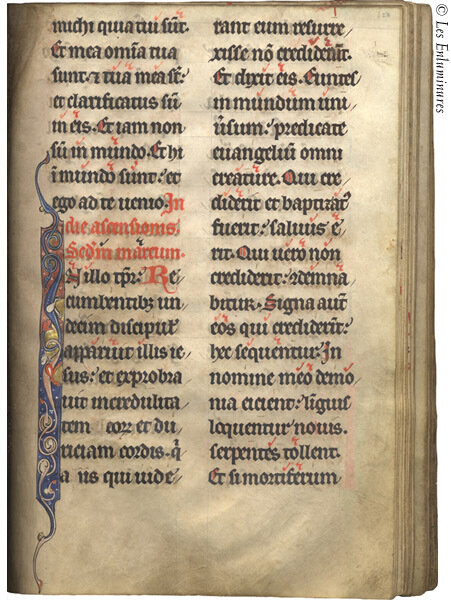 michi quia tui sūt.
Et mea om̄ia tua
sunt. ⁊ tua mea sт̄:
et clarificatus sū
in eis. Et iam non
sū in mūndo. Et hi
ī mundo sunt: et
ego ad te uenio. In
die ascensionis
Scd̄m marcum.
N illo tp̄r: Re
cumbentibꝫ un
decim discipuł
apparuit illis ie
sus: et exprobra
uit incredulita
tem eorꝝ et du
riciam cordis. q̄
a us qui uide
rant eum resurre
xisse nō crediderūt.
Et dixit eis. Euntes
in mundum uni
ūsum: predicate
euangeliū omni
creature. Qui cre
diderit et baptizat᷒
fuerit: saluus ē
rit. Qui uero non
crediderit: ꝯdemna
bitur. Signa aut̄
eos qui crediderīt:
hec sequentur. In
nomine meo demo
nia eicient: līguis
loquentur nouis.
serpentes tollent.
Et si mortiferum
© Les Enluminures